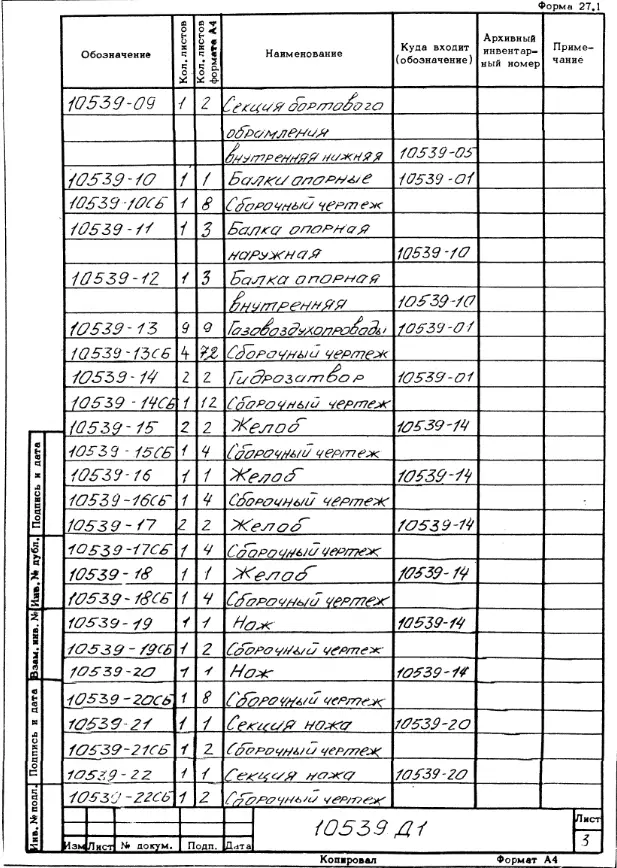 Форма 27.1
Обозначение Кол. листов Кол. листов формата А4 Наименование Куда входит (обозначение) Архивный инвентарный номер Примечание
10539-09 1 2 Секция бортового
обрамления
внутренняя нижняя 10539-05
10539-10 1 1 Балки опорные 10539-01
10539-10СБ 1 8 Сборочный чертеж
10539-11 1 3 Балка опорная
наружная 10539-10
10539-12 1 3 Балка опорная
внутренняя 10539-10
10539-13 9 9 Газовоздухопроводы 10539-01
10539-13СБ 4 72 Сборочный чертеж
10539-14 2 2 Гидрозатвор 10539-01
10539-14СБ 1 12 Сборочный чертеж
10539-15 2 2 Желоб 10539-14
10539-15СБ 1 4 Сборочный чертеж
10539-16 1 1 Желоб 10539-14
10539-16СБ 1 4 Сборочный чертеж
10539-17 2 2 Желоб 10539-14
10539-17СБ 1 4 Сборочный чертеж
10539-18 1 1 Желоб 10539-14
10539-18СБ 1 4 Сборочный чертеж
10539-19 1 1 Нож 10539-14
10539-19СБ 1 2 Сборочный чертеж
10539-20 1 1 Нож 10539-14
10539-20СБ 1 8 Сборочный чертеж
10539-21 1 1 Секция ножа 10539-20
10539-21СБ 1 2 Сборочный чертеж
10539-22 1 1 Секция ножа 10539-20
10539-22СБ 1 2 Сборочный чертеж
Инв. № подл. Подпись и дата Взам. инв. № Инв. № дубл. Подпись и дата
Изм Лист № докум. Подп. Дата
10539 Д1
Лист
3
Копировал Формат А4